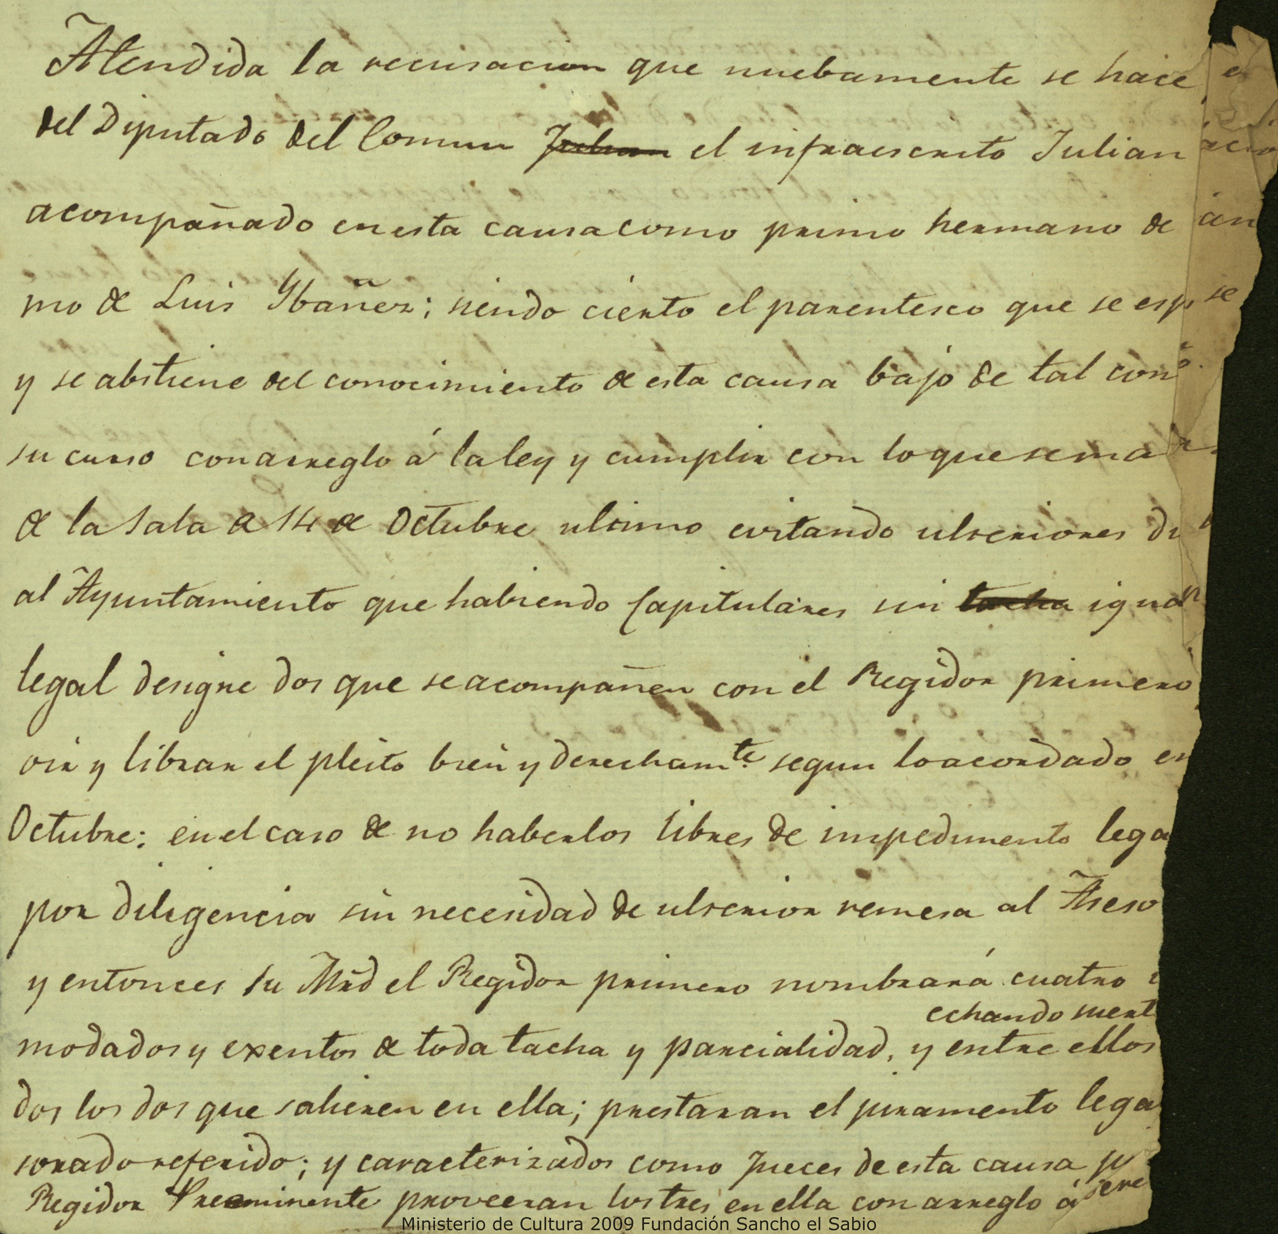 Atendida la recusacion que nuebamente se hace
del Diputado del Comun Julian el infraescrito Julian
acompañado en esta causa como primo hermano de
mo de Luis Ybañez; siendo cierto el parentesco que se esp
y se abstiene del conocimiento de esta causa bajo de tal con
su curso con arreglo á la ley y cumplir con lo que se ma
de la Sala de 14 de Octubre ultimo evitando ulteriores di
al Ayuntamiento que habiendo Capitulares sin tacha igua
legal designe dos que se acompañen con el Regidor primero
oir y librar el pleito bien y derecham.te segun lo acordado en
Octubre: en el caso de no haberlos libres de impedimento lega
por diligencia sin necesidad de ulterior remesa al Aseso
y entonces su Mrd el Regidor primero nombrará cuatro
echando suert
modados y exentos de toda tacha y parcialidad, y entre ellos
dos los dos que salieren en ella; prestaran el juramento lega
sorado referido; y caracterizados como Jueces de esta causa
Regidor Preeminente proveeran los tres en ella con arreglo á
Ministerio de Cultura 2009 Fundación Sancho el Sabio